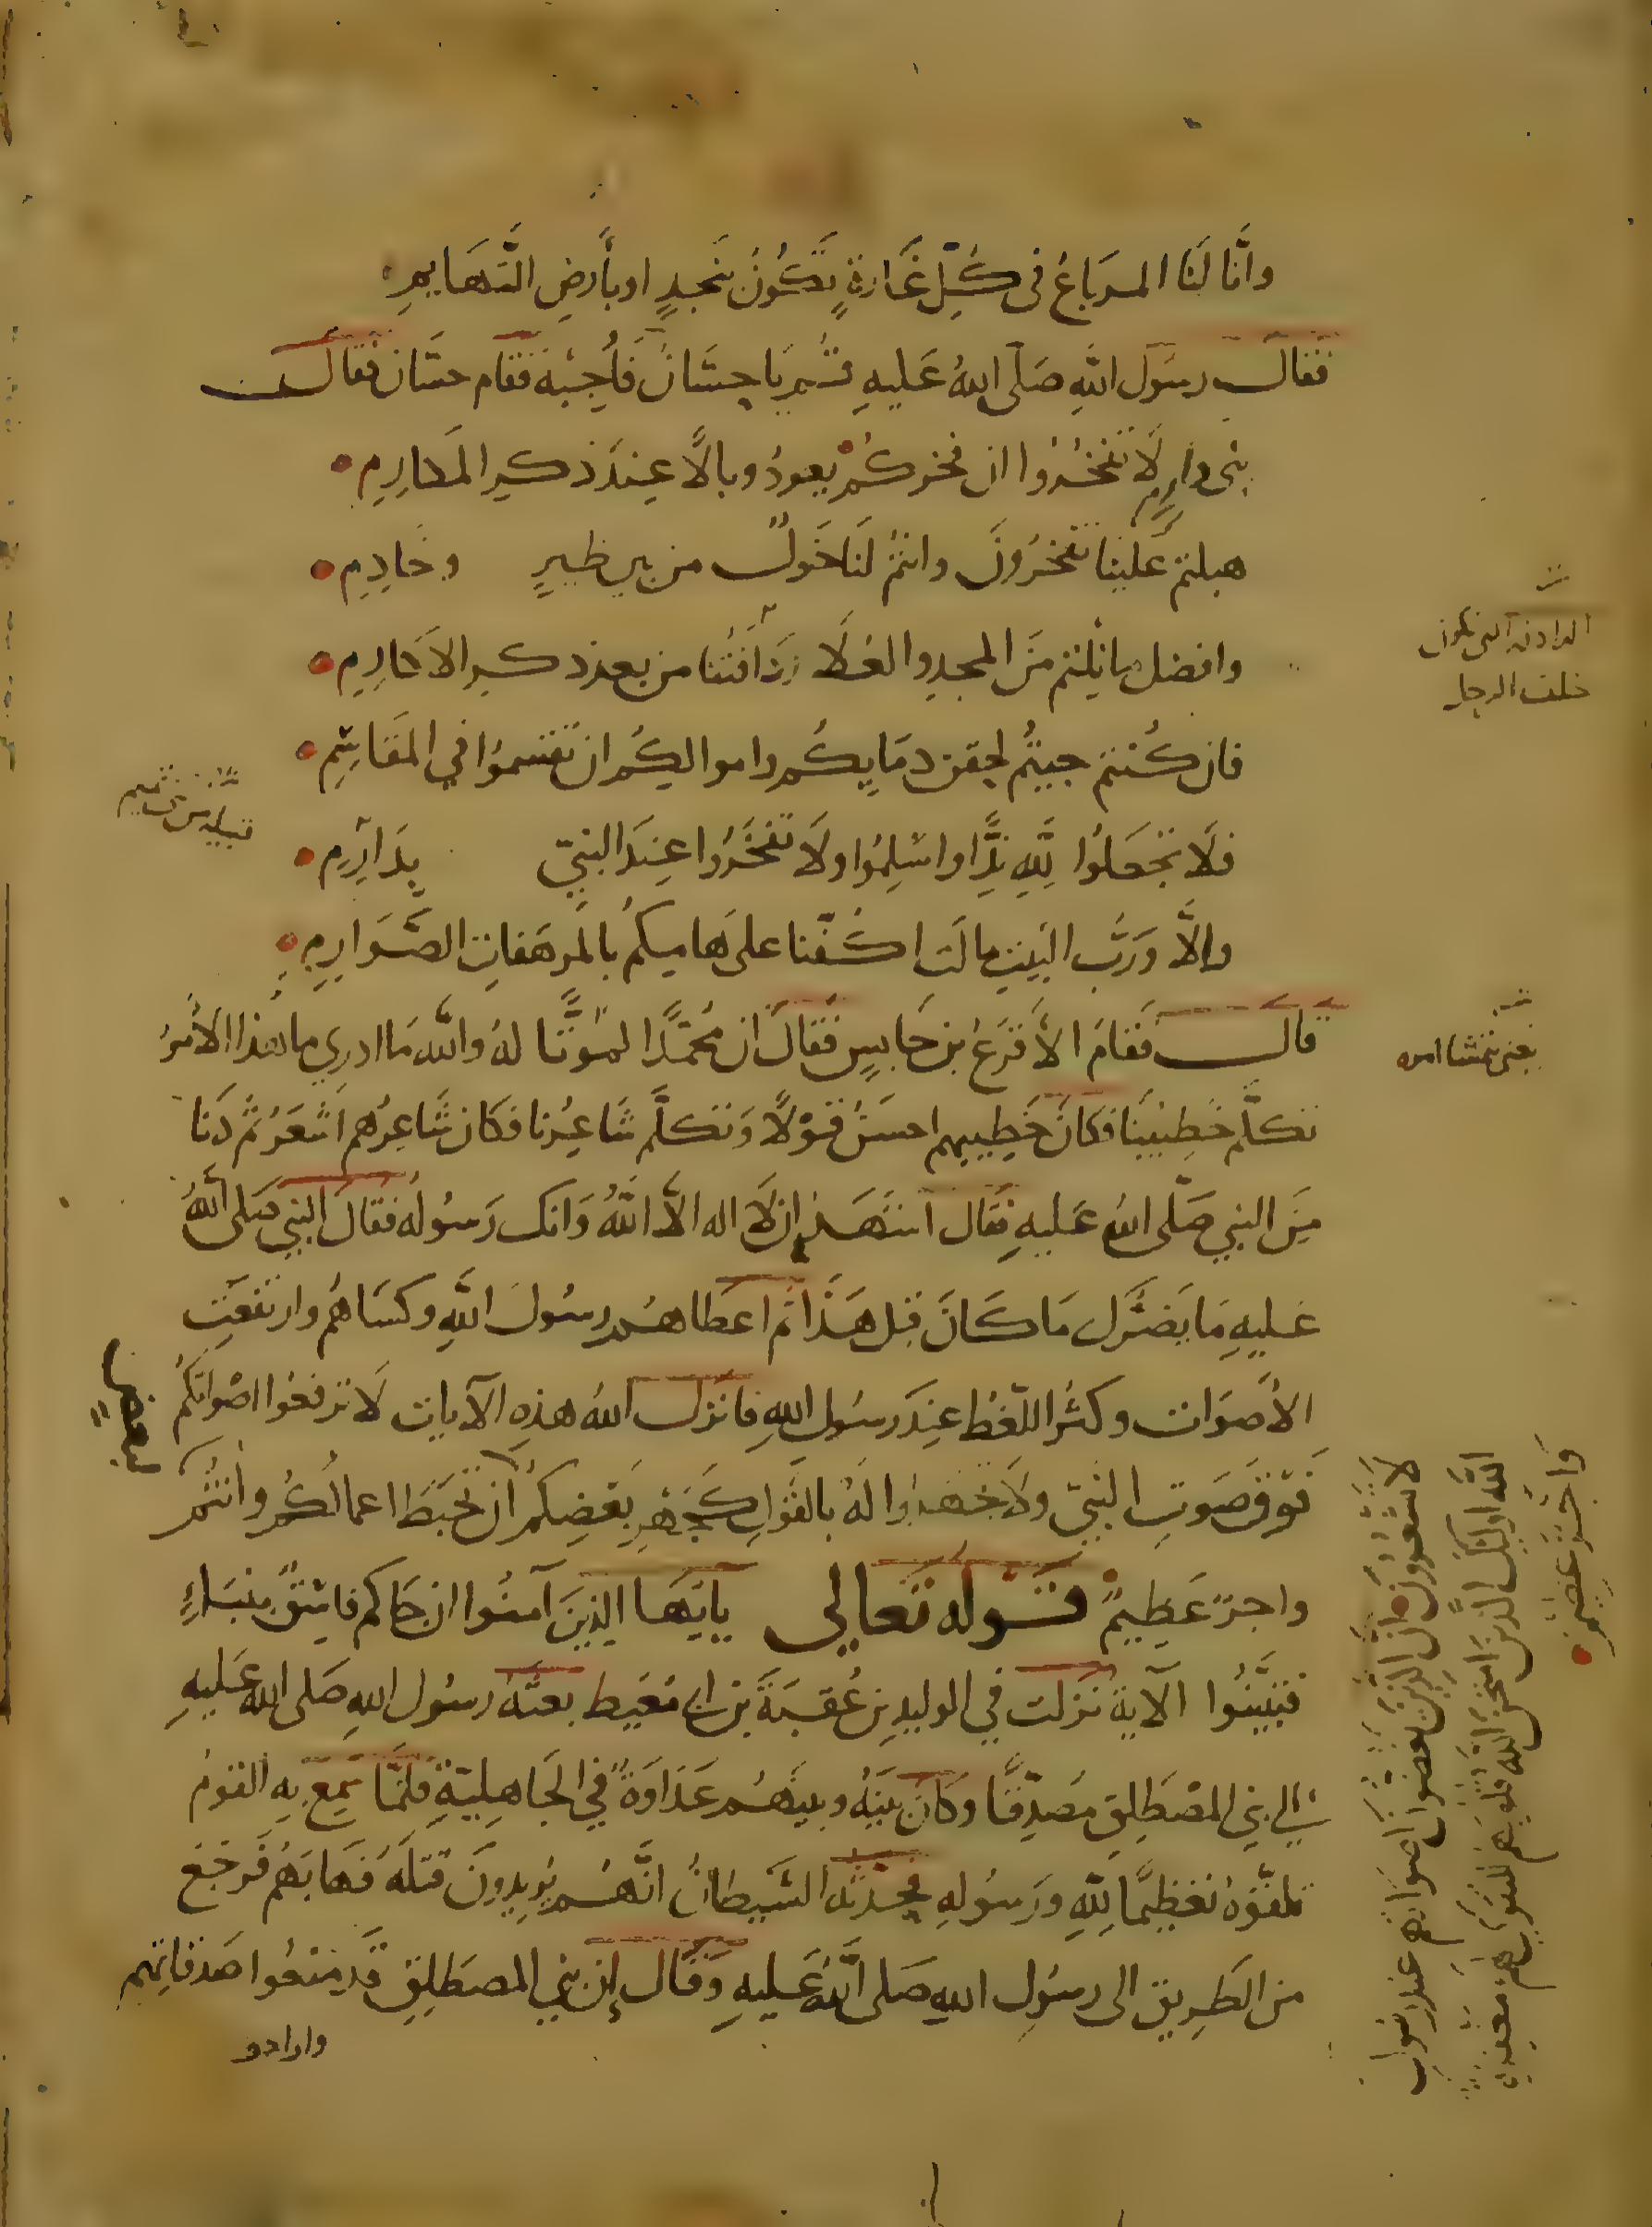 وأنّا لنا المرباع في كُلِّ غَارةٍ تَكُونُ بنَجدٍ او بأَرضِ التَّهَايمِ
فقال رسُول اللَّهِ صَلّى اللهُ عَليهِ قُم يَا حسّانُ فَأجِبْهُ فقام حسّان فقال
بنى دارِمٍ لَا تفخُروا ان فخركُمْ يعودُ وبالًا عِندَ ذكرِ المكارِمِ
هبلتم عَلينا تفخرُونَ وانتمُ لنَا خَولٌ من بين ظيرٍ وخَادِمِ
وافضل ما نِلتم مِنَ المجدِ والعُلَا رَدَافَتُنا من بعد ذكرِ الاكارِمِ
فان كُنتم جيتُم لحقن دمَايكُم واموالِكُم ان تقسموُا في المقَاسِمِ
فلَا تجعَلُوا لِلَّهِ نِدًّا واسْلِمُوا ولَا تفخَرُوا عِندَ النبيّ بِدَارِمِ
والَّا وَرَبِّ البَيتِ مالَت اكُفّنا على هَاميكمُ بالمُرهَفاتِ الصَّوَارِمِ
قال فَقَامَ الأَقرَعُ بن حَابِسٍ فقَالَ ان مُحَمّدًا لمؤتًّا لهُ واللَّه مَا ادرِي ما هذا الأمرُ
تكلّم خَطِيبُنَا فكانَ خَطِيبهم احسَنُ قَوْلًا وَتكلَّم شَاعِرُنا فكان شَاعِرُهم اشعَرُ ثمّ دَنَا
مِنَ النبي صَلّى اللهُ عَليهِ فقَال اشهَد ان لَا اله الَّا اللَّهُ وَانك رَسُولهُ فقالَ النبي صَلى اللهُ
عَليهِ مَا يَضُرُّك مَا كَانَ قبل هَذَا ثم اعطاهُم رسُولَ اللَّهِ وكسَاهُم وارتفعَتِ
الأَصوَات وكثُرَ اللّغطُ عِندَ رسُول اللهِ فانزل اللهُ هذِهِ الآيات لَا ترفعُوا اصْوَاتكُمُ
فَوقَ صَوتِ النّبيّ ولَا تجهَروا لَهُ بالقَولِ كَجَهْرِ بَعَضِكمُ ان تحَبَطَ اعمالُكُم وانتُم
واجرٌ عَظِيمٌ قَولُه تعَالى يايّهَا الذِينَ آمَنُوا ان جاكم فاسِقٌ بنَبَاءٍ
فتبَيَّنُوا الآية نَزلت في الوليدِ بن عُقبَةَ بن ابي مُعَيط بعثهُ رسُول اللهِ صَلى اللهُ عَليهِ
الى بني المصْطَلِقِ مُصَدِّقًا وكان بَينَهُ وبينَهُم عَدَاوَةٌ في الجَاهِلِيّةِ فلَمّا سَمِعَ بِهِ القَومُ
تلقَّوْهُ تعَظيمًا لِلّهِ ورَسُولِهِ فحدّثهُ الشَّيطانُ انَّهُم يُرِيدُونَ قتلَهُ فهَابَهُم فَرجَعَ
من الطَريق الى رسُولِ اللهِ صَلى اللَّهُ عَليهِ وَقَال إن بَنِي المصطَلِقِ قد منعُوا صَدقاتِهم
وارادو
الرادفة التي تكون
خلف الرجل
قبيلة من بني تميم
يعني تمشا امره
لَا تشعُرُونَ انّ الذينَ يغضُونَ اصوَاتهم عند رسُول
اللَّهِ اولئك الَّذينَ امتحَنَ اللهُ قلُوبَهم للتقوى لهم مغفرة
وَاجرٌ عَظِيمٌ